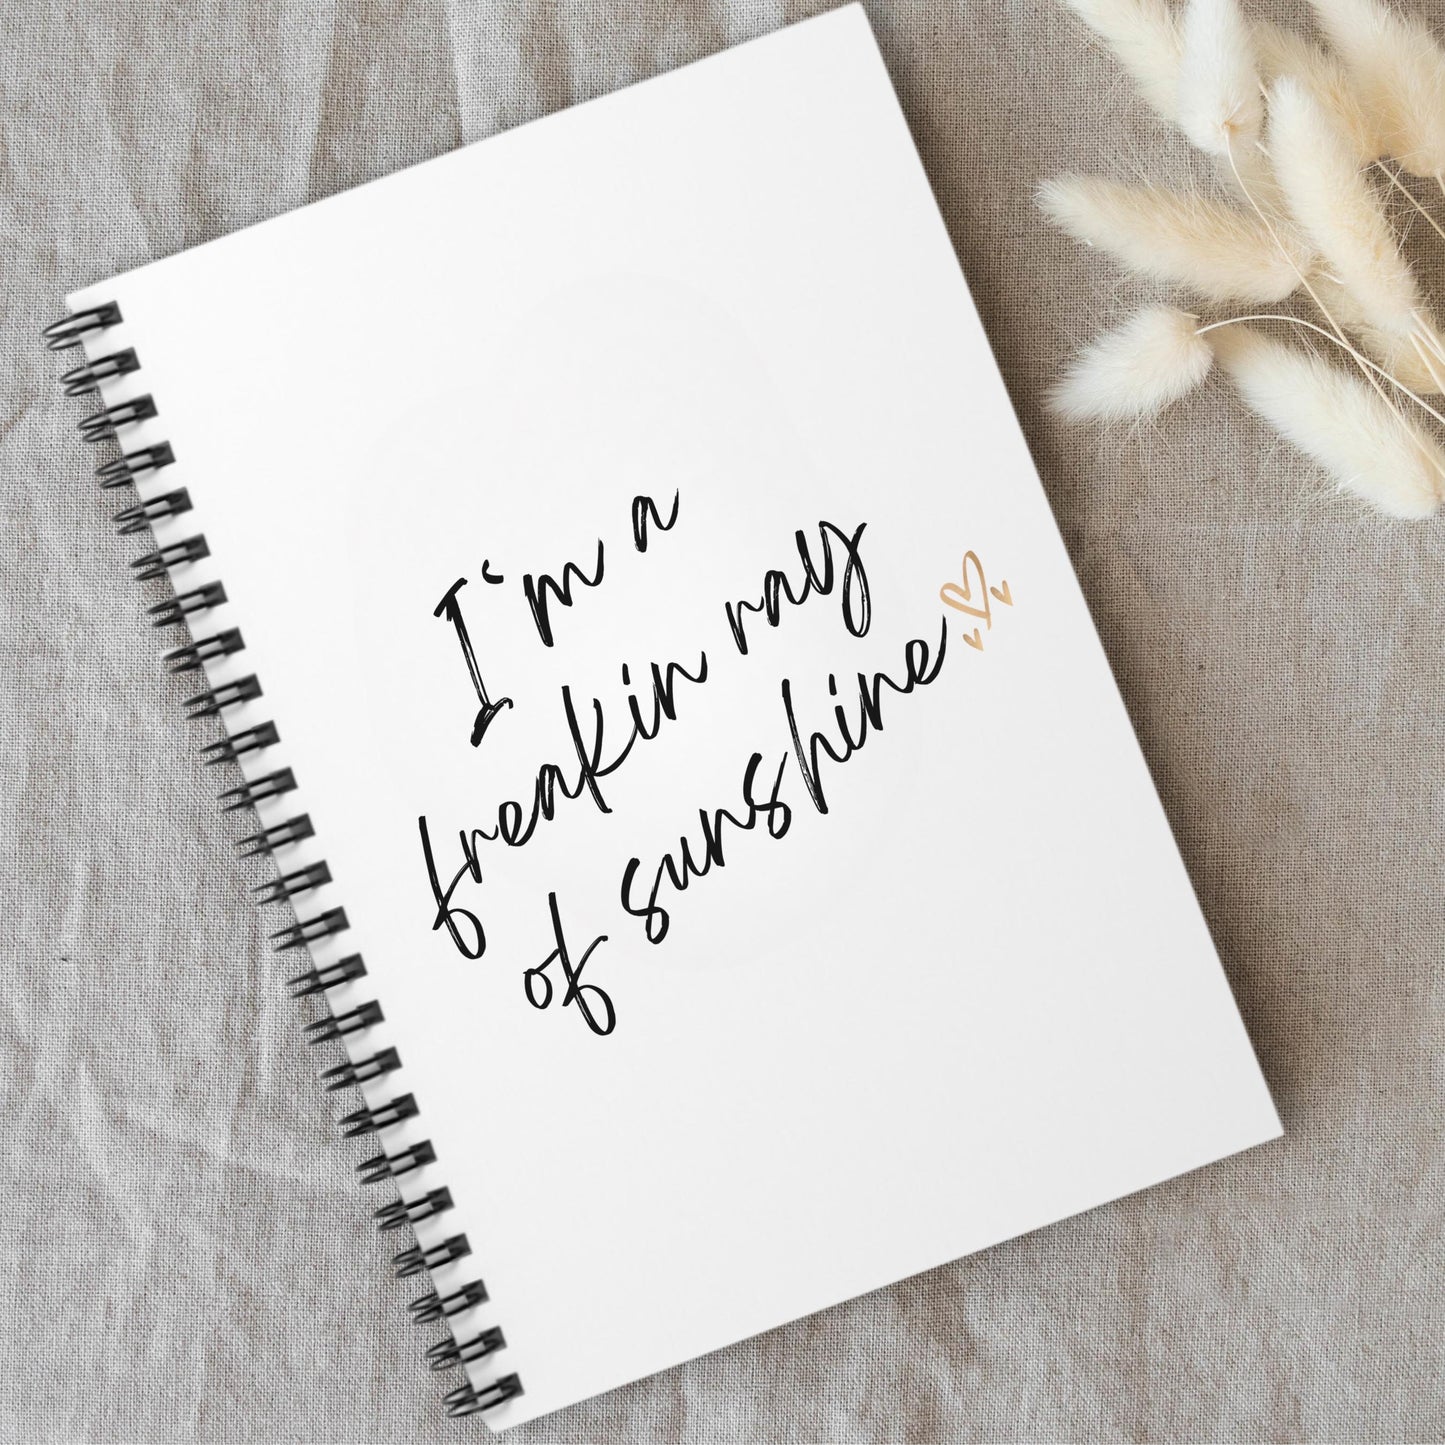 I'm a
freakin ray
of sunshine